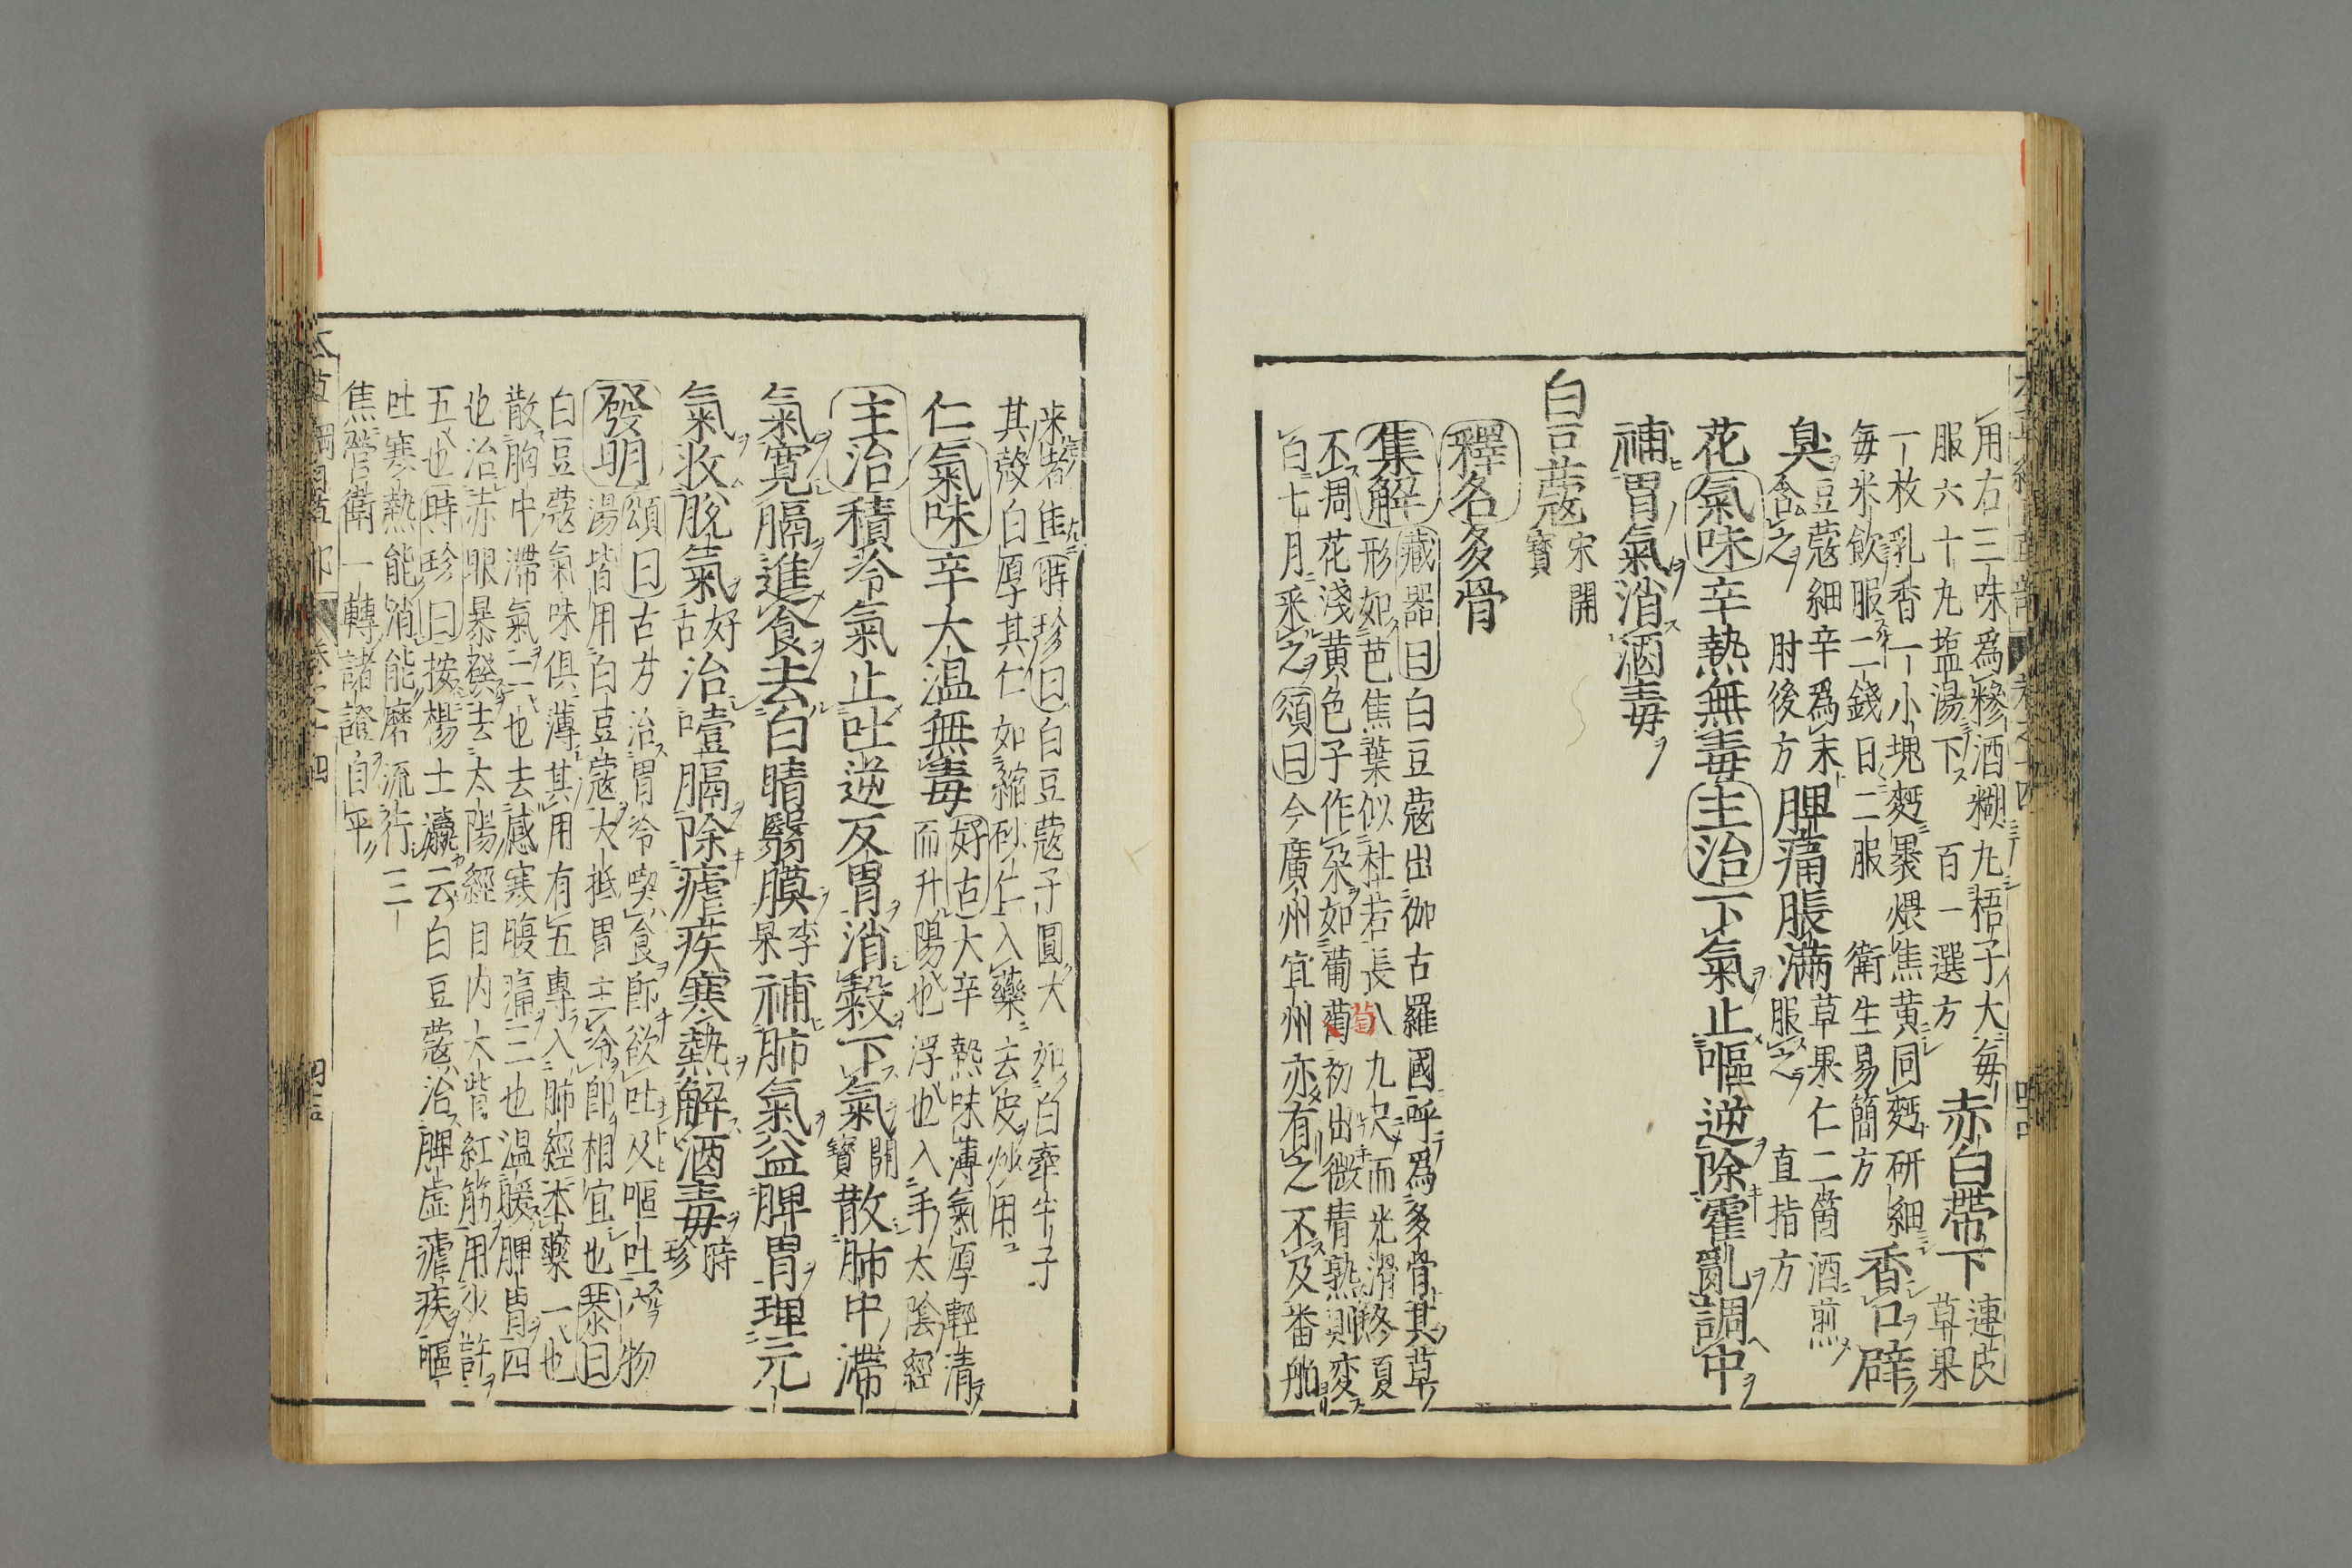 用右三味爲糝酒糊丸梧子大毎
服六十丸塩湯下 百一選方 赤白帶下 連皮草果
一枚乳香一小塊麪裹煨焦黄同麪研細
毎米飲服二錢日二服 衛生易簡方 香口辟
臭 豆蔻細辛爲末含之 肘後方 脾痛脹滿 草果仁二箇酒煎服之 直指方
花氣味辛熱無毒主治下氣止嘔逆除霍亂調中
補胃氣消酒毒
白豆蔻 宋開寳
釋名多骨
集解 藏器曰白豆蔻出伽古羅國呼爲多骨其草
形如芭焦葉似杜若長八九尺而光滑終夏
不凋花淺黄色子作朶如葡萄初出微青熟則変
白七月釆之頌曰今廣州宜州亦有之不及番舶
萄
来者佳時珍曰白豆蔻子圓大如白牽牛子
其殻白厚其仁如縮砂仁入藥去皮炒用
仁氣味辛大温無毒 好古大辛熱味薄氣厚輕清
而升陽也浮也入手太陰經
主治積冷氣止吐逆反胃消穀下氣 開寳 散肺中滯
氣寛膈進食去白睛翳膜 李杲 補肺氣益脾胃理元
氣收脫氣 好古 治噎膈除瘧疾寒熱解酒毒 時珍
發明 頌曰古方治胃冷喫食即欲吐及嘔吐六物
湯皆用白豆蔻大抵胃主冷即相宜也杲曰
白豆蔻氣味俱薄其用有五專入肺經本藥一也
散胸中滯氣二也去感寒腹痛三也温暖脾胃四
也治赤眼暴發去太陽經目内大眥紅筋用少許
五也時珍曰按楊士瀛云白豆蔻治脾虚瘧疾嘔
吐寒熱能消能磨流行三
焦營衛一轉諸證自平